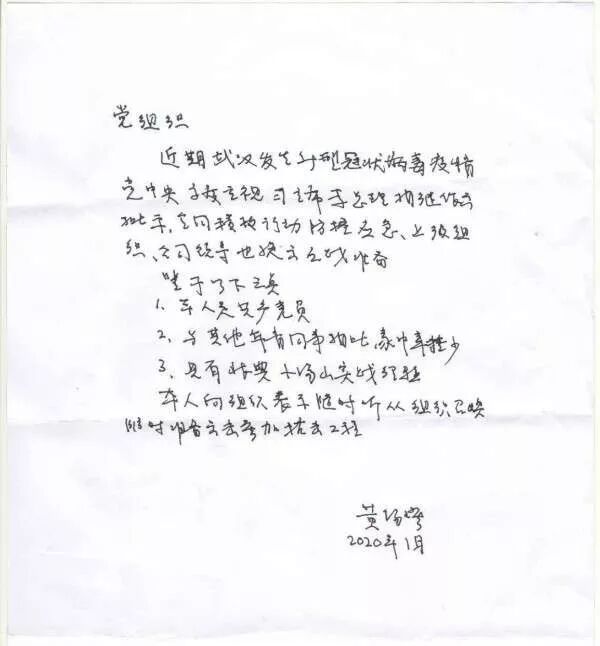 党组织
近期武汉发生新型冠状病毒疫情
党中央高度重视习主席李总理相继作出
批示,全国积极行动防控应急、上级组
织、公司领导也提出应战准备
鉴于以下三点
1. 本人是共产党员
2. 与其他年青同事相比,家中牵挂少
3. 具有非典小汤山实战经验
本人向组织表示随时听从组织召唤
随时准备出击参加抗击工程
黄
2020年1月